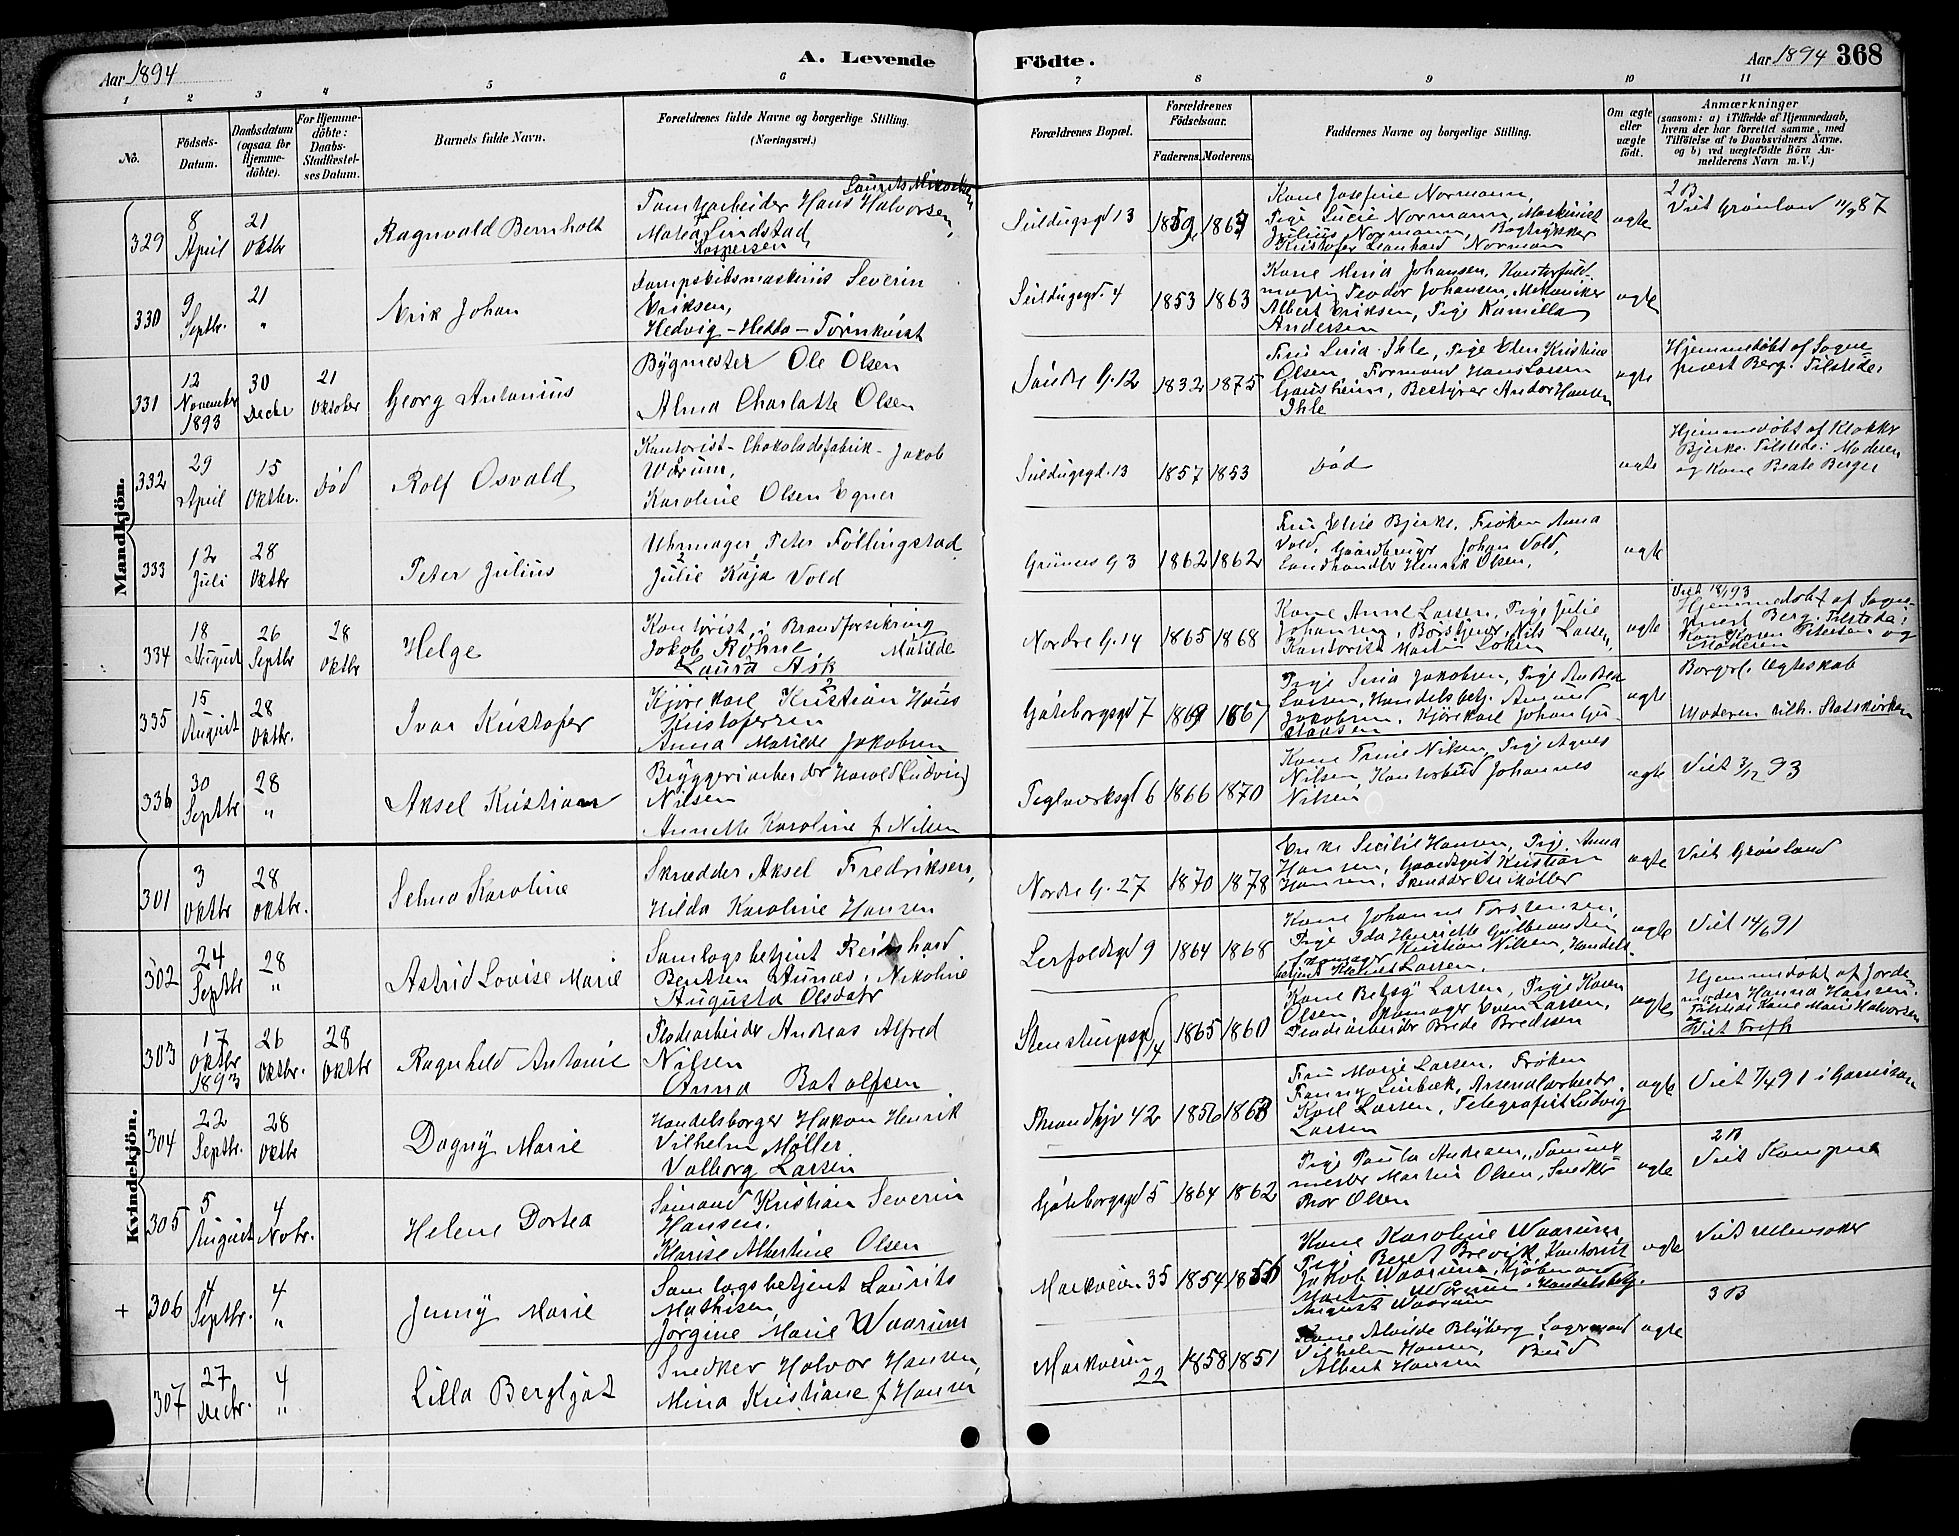 Aar 1894
A. Levende Födte.
Aar 1894 368
1 2 3 4 5 6 7 8 9 10 11
No.
Födsels-Datum.
Daabsdatum (ogsaa for Hjemmedöbte).
For Hjemmedöbte: Daabs-Stadfæstelses Datum.
Barnets fulde Navn.
Forældrenes fulde Navne og borgerlige Stilling. (Næringsvei.)
Forældrenes Bopæl.
Forældrenes Födselsaar.
Faderens. Moderens.
Faddernes Navne og borgerlige Stilling.
Om ægte eller uægte födt.
Anmærkninger
(saasom: a) i Tilfælde af Hjemmedaab, hvem der har forrettet samme, med Tilföielse af to Daabsvidners Navne, og b) ved uægtefödte Börn Anmelderens Navn m. V.)
Mandkjön.
329 8 April 21 Oktbr Ragnvald Bernholt
Hans Halvorsen,
Lindstad
Kaspersen
13 1859 1863
Kone Josefine Normann,
Pige Lucie Normann, Maskinist
Julius Normann, Bogtrykker
Kristofer Leonhard Norman
ægte
2 B
Viet Grønland 11/9 87
330 9 Septbr. 21 " Erik Johan
Dampskibsmaskinist Severin
Eriksen,
Hedvig - Hedda - Törnkvist
4 1853 1863
Johansen, Kontorfuld-
mægtig Teodor Johansen, Mekaniker
Albert Eriksen, Pige Kamilla
Andersen
ægte
331 12 November 1893 30 Decbr 21 Oktober Georg Antonius
Bygmester Ole Olsen
Alma Charlotte Olsen
Söndre G. 12 1832 1875
Ihle, Pige Kristine
Olsen, Formand Hans Larsen
Bestyrer Andor Hansen
Ihle
ægte
Hjemmedöbt af Sogne
prest Berg. Tilstede:
332 29 April 15 Oktbr. död Rolf Osvald
Kontorist - Chokoladefabrik - Jakob
Wårum,
Karoline Olsen Egner
13 1857 1853
död
ægte
Hjemmedöbt af Klokker
Bjerke. Tilstede: Moderen
og Kone Beate Berger
333 12 Juli 28 Oktbr Peter Julius
Uhrmager Peter Föllingstad
Julie Kaja Vold
Grüners G 3 1862 1862
Fru Elise Bjerke, Fröken Anna
Vold, Gaardbruger Johan Vold,
Landhandler Henrik Olsen,
ægte
334 18 August 26 Septbr 28 Oktbr Helge
Kontorist i Brandforsikring
Jakob Röhne, Matilde
Laura Ask
Nordre G. 14 1865 1868
Kone Anne Larsen, Pige Julie
Johansen, Nils Larsen,
Kontorist Martin Löken
ægte
Hjemmedöbt af Sogne-
prest Berg. Tilstede:
Kone Karen Petersen og
Moderen
335 15 August 28 Oktbr. Ivar Kristofer
Kjörekarl Kristian Hans
Kristofersen
Anna Matilde Jakobsen
Göteborgsgd 7 1869 1867
Pige Jakobsen, Pige Andrea
Larsen, Handelsbetj. Amund
Jakobsen, Kjörekarl Johan Gu-
stavsen
ægte
Borgerl. Ægteskab
Moderen tilh. Statskirken
336 30 Septbr 28 " Aksel Kristian
Bryggeriarbeider Harald Ludvig
Nilsen
Annette Karoline f Nilsen
Teglverksgd 6 1866 1870
Kone Nilsen, Pige Agnes
Nilsen, Kontorbud Johannes
Nilsen
ægte
Viet 3/12 93
Kvindekjön.
301 3 Oktbr 28 Oktbr. Selma Karoline
Skrædder Aksel Fredriksen,
Hilda Karoline Hansen
Nordre G. 27 1870 1878
Enke Sicilie Hansen, Pige Anna
Hansen, Kristian
Hansen, Skrædder Ole Möller
ægte
Viet Grönland
302 24 Septbr 28 " Astrid Lovise Marie
Samlagsbetjent Reinhard
Bentsen Aunæs, Nikoline
Augusta Olsdatr
9 1864 1868
Kone Johanne Torstensen,
Pige Ida Henriette Gulbrandsen
Skomager Kristian Nilsen, Handels-
betjent Larsen.
ægte
Viet 14/6 91
303 17 Oktbr 1893 26 Oktbr. 28 Oktbr Ragnhild Antonie
Andreas Alfred
Nilsen
Anna Botolfsen
Stenstrupsgd 4 1865 1860
Kone Betsy Larsen, Pige Karen
Olsen, Skomager Even Larsen,
Brede Bredesen
ægte
Hjemmedöbt af Jorde-
moder Hanna Hansen.
Tilstede Kone Marie Halvorsen
304 22 Septbr. 28 Oktbr Dagny Marie
Handelsborger Hakon Henrik
Vilhelm Möller
Valborg Larsen
42 1856 1863
Fru Marie Larsen, Fröken
Fanny Linbæk, Arsenalarbeider
Karl Larsen, Telegrafist Ludvig
Larsen
ægte
Viet 7/4 91 i Garnison
305 5 August 4 Novbr. Helene Dortea
Sömand Kristian Severin
Hansen.
Klarise Albertine Olsen
Göteborgsgd 5 1864 1862
Pige Paula Andersen, Tömmer
mester Martin Olsen, Snedker
Thor Olsen
ægte
2 B
Viet Kampen
+ 306 4 Septbr. 4 " Jenny Marie
Samlagsbetjent Laurits
Mathisen,
Jörgine Marie Waarum
Markveien 35 1854 1856
Kone Karoline Waarum
Pige Beret Brevik, Kontorist
Jakob Waarum, Kjöbmand
Martin Wårum, Handelsbetj.
August Waarum
ægte
Viet Ullensaker
307 27 Decbr. 4 " Lilla Bergljot
Snedker Halvor Hansen,
Mina Kristiane f Hansen
Markveien 22 1858 1851
Kone Alvilde Blyberg, Lagermand
Vilhelm Hansen, Bud
Albert Hansen
ægte
3 B